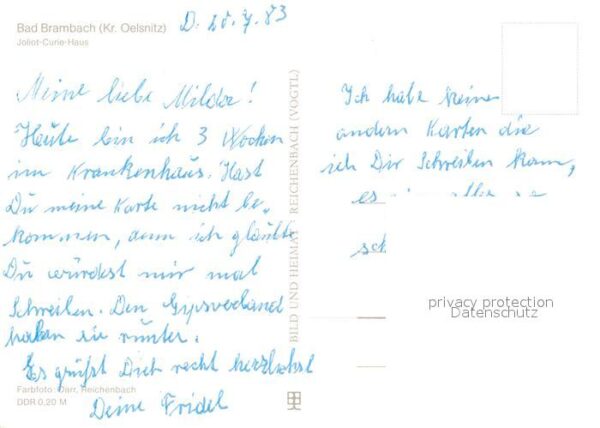 Bad Brambach (Kr. Oelsnitz)
Joliot-Curie-Haus
D. 20.7.83
Meine liebe Milda!
Heute bin ich 3 Wochen
im Krankenhaus. Hast
Du meine Karte nicht be„
kommen, denn ich glaubte
Du würdest mir mal
Schreiben. Den Gipsverband
haben sie runter.
Es grüßt Dich recht herzlichst
Deine Fridel
Farbfoto: Darr, Reichenbach
DDR 0,20 M
BILD UND HEIMAT REICHENBACH (VOGTL)
Ich habe keine
andern Karten die
ich Dir Schreiben kann,
es
privacy protection
Datenschutz